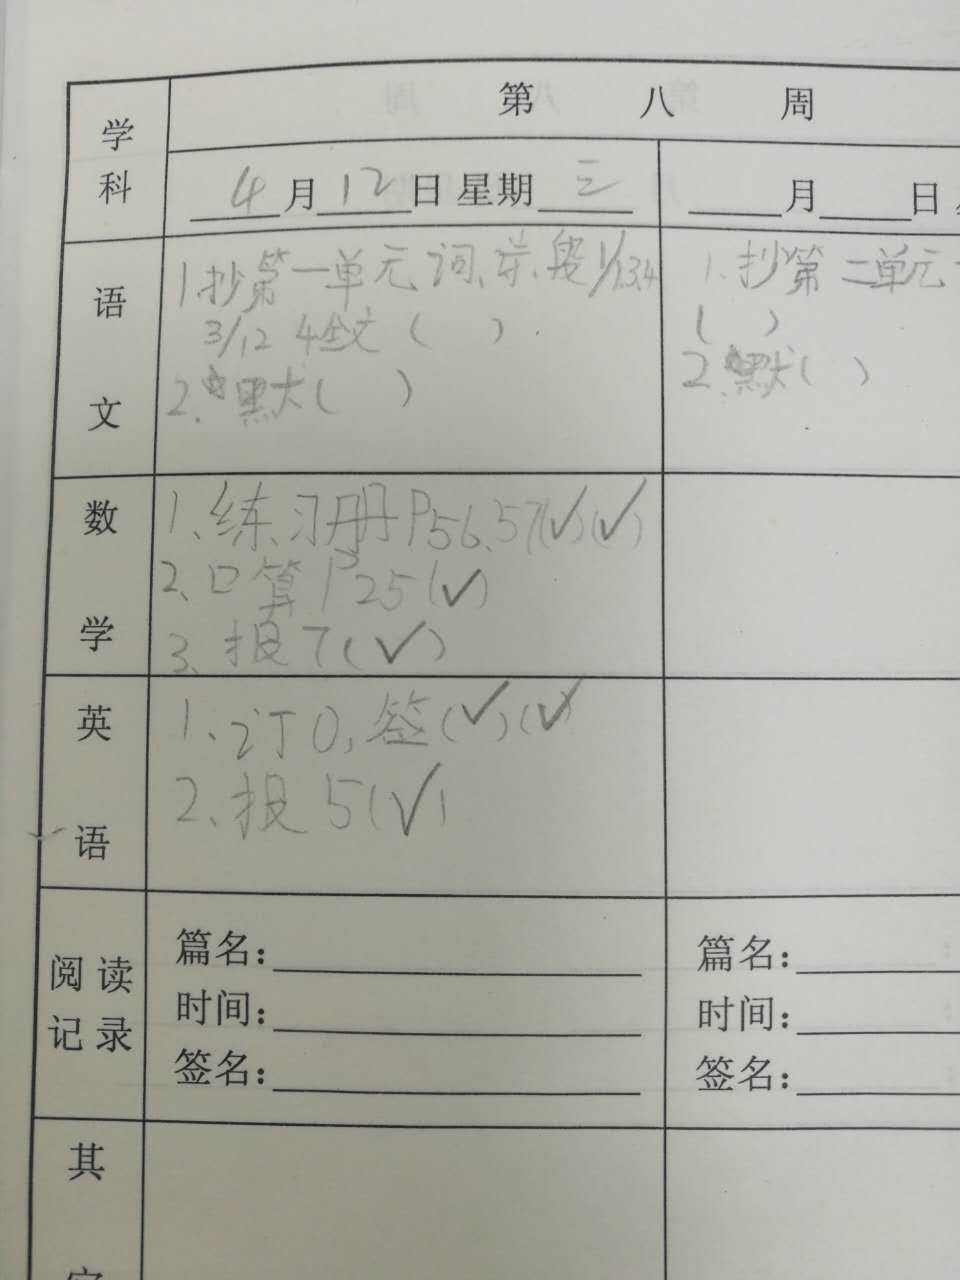 学科
第 八 周
4月12日 星期三
月 日
语文
1.抄第一单元词、并、段1/1234
3/12 4全文( )
2.默( )
1.抄第二单元
( )
2.默( )
数学
1、练习册P56、57(✓)(✓)
2、口算P25(✓)
3、报7(✓)
英语
1、订0,签(✓)(✓)
2、报5(✓)
阅读记录
篇名:
时间:
签名:
篇名:
时间:
签名:
其